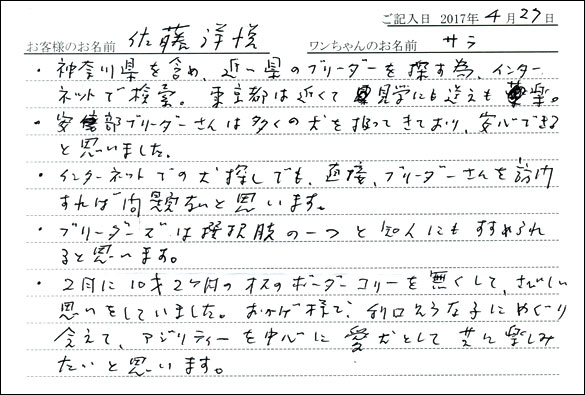 ご記入日 2017年 4月 27日
お客様のお名前 佐藤洋悦 ワンちゃんのお名前 サラ
・神奈川県を含め、近い県のブリーダーを探す為、インター
ネットで検索。東京都は近くて見学にも迎えも楽。
・安倍部ブリーダーさんは多くの犬を扱ってきており、安心できる
と思いました。
・インターネットでの犬探しでも、直接、ブリーダーさんを訪問
すれば問題ないと思います。
・ブリーダーズでは選択肢の一つと知人にもすすめられ
ると思います。
・2月に10才2ヶ月のオスのボーダーコリーを無くして、さびしい
思いをしていました。おかげ様で、利口そうな子にめぐり
会えて、アジリティーを中心に愛犬として共に楽しみ
たいと思います。